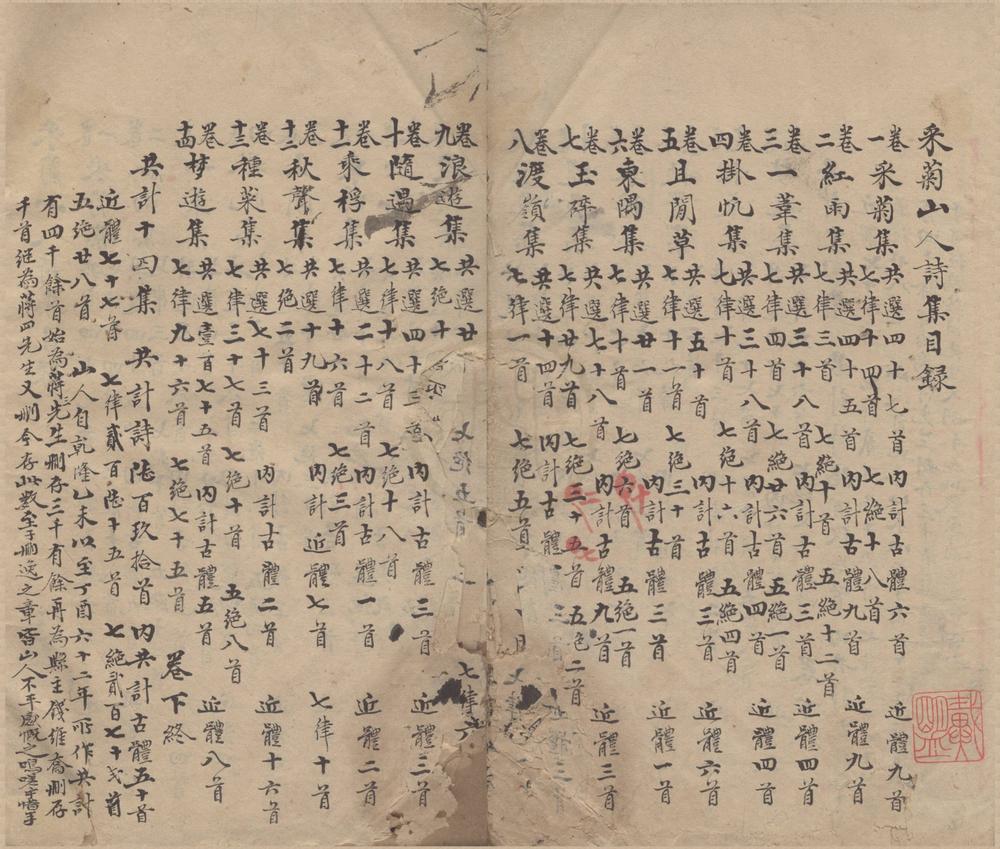 采菊山人詩集目録
卷一 采菊集 共選四十七首 内計古體六首 近體九首
七律十四首 七絶十八首
卷二 紅雨集 共選四十五首 内計古體九首 近體九首
七律三首 七絶十首 五絶十二首
卷三 一葦集 共選三十八首 内計古體三首 近體四首
七律四首 七絶廿六首 五絶一首
卷四 掛帆集 共選三十八首 内計古體四首 近體四首
七律十首 七絶十六首 五絶四首
卷五 且閒草 共選五十首 内計古體三首 近體六首
七絶三十首
卷六 東隅集 共選廿一首 内計古體三首 近體一首
七律十首 七絶六首 五絶一首
卷七 玉碎集 共選七十八首 内計古體九首 近體三首
七律廿九首 七絶三十五首 五絶二首
卷八 渡嶺集 共選十四首 内計古體三首
七律一首 七絶五首
卷九 浪遊集 共選廿
七絶十
卷十 隨遇集 共選四十三首 内計古體三首 近體三首
七律十八首 七絶十八首
卷十一 乘桴集 共選二十二首 内計古體一首 近體二首
七律十六首 七絶三首
卷十二 秋聲集 共選十九首 内計近體七首 七律十首
七絶二首
卷十三 種菜集 共選七十三首 内計古體二首 近體十六首
七律三十七首 七絶十首 五絶八首
卷十四 梦遊集 共選壹百七十五首 内計古體五首 近體八首
七律九十六首 七絶七十五首 卷下終
共計十四集 共計詩陸百玖拾首 内共計古體五十首
近體七十七首 七律貳百陸十五首 七絶貳百七十弍首
五絶廿八首 山人自乾隆乙未以至丁酉六十二年所作共計
有四千餘首始為蔣先生刪存三千有餘再為縣主錢維喬刪存
千首继為蔣四先生又刪今存此數至于刪逸之章皆山人不平感慨之鳴嗟乎惜乎